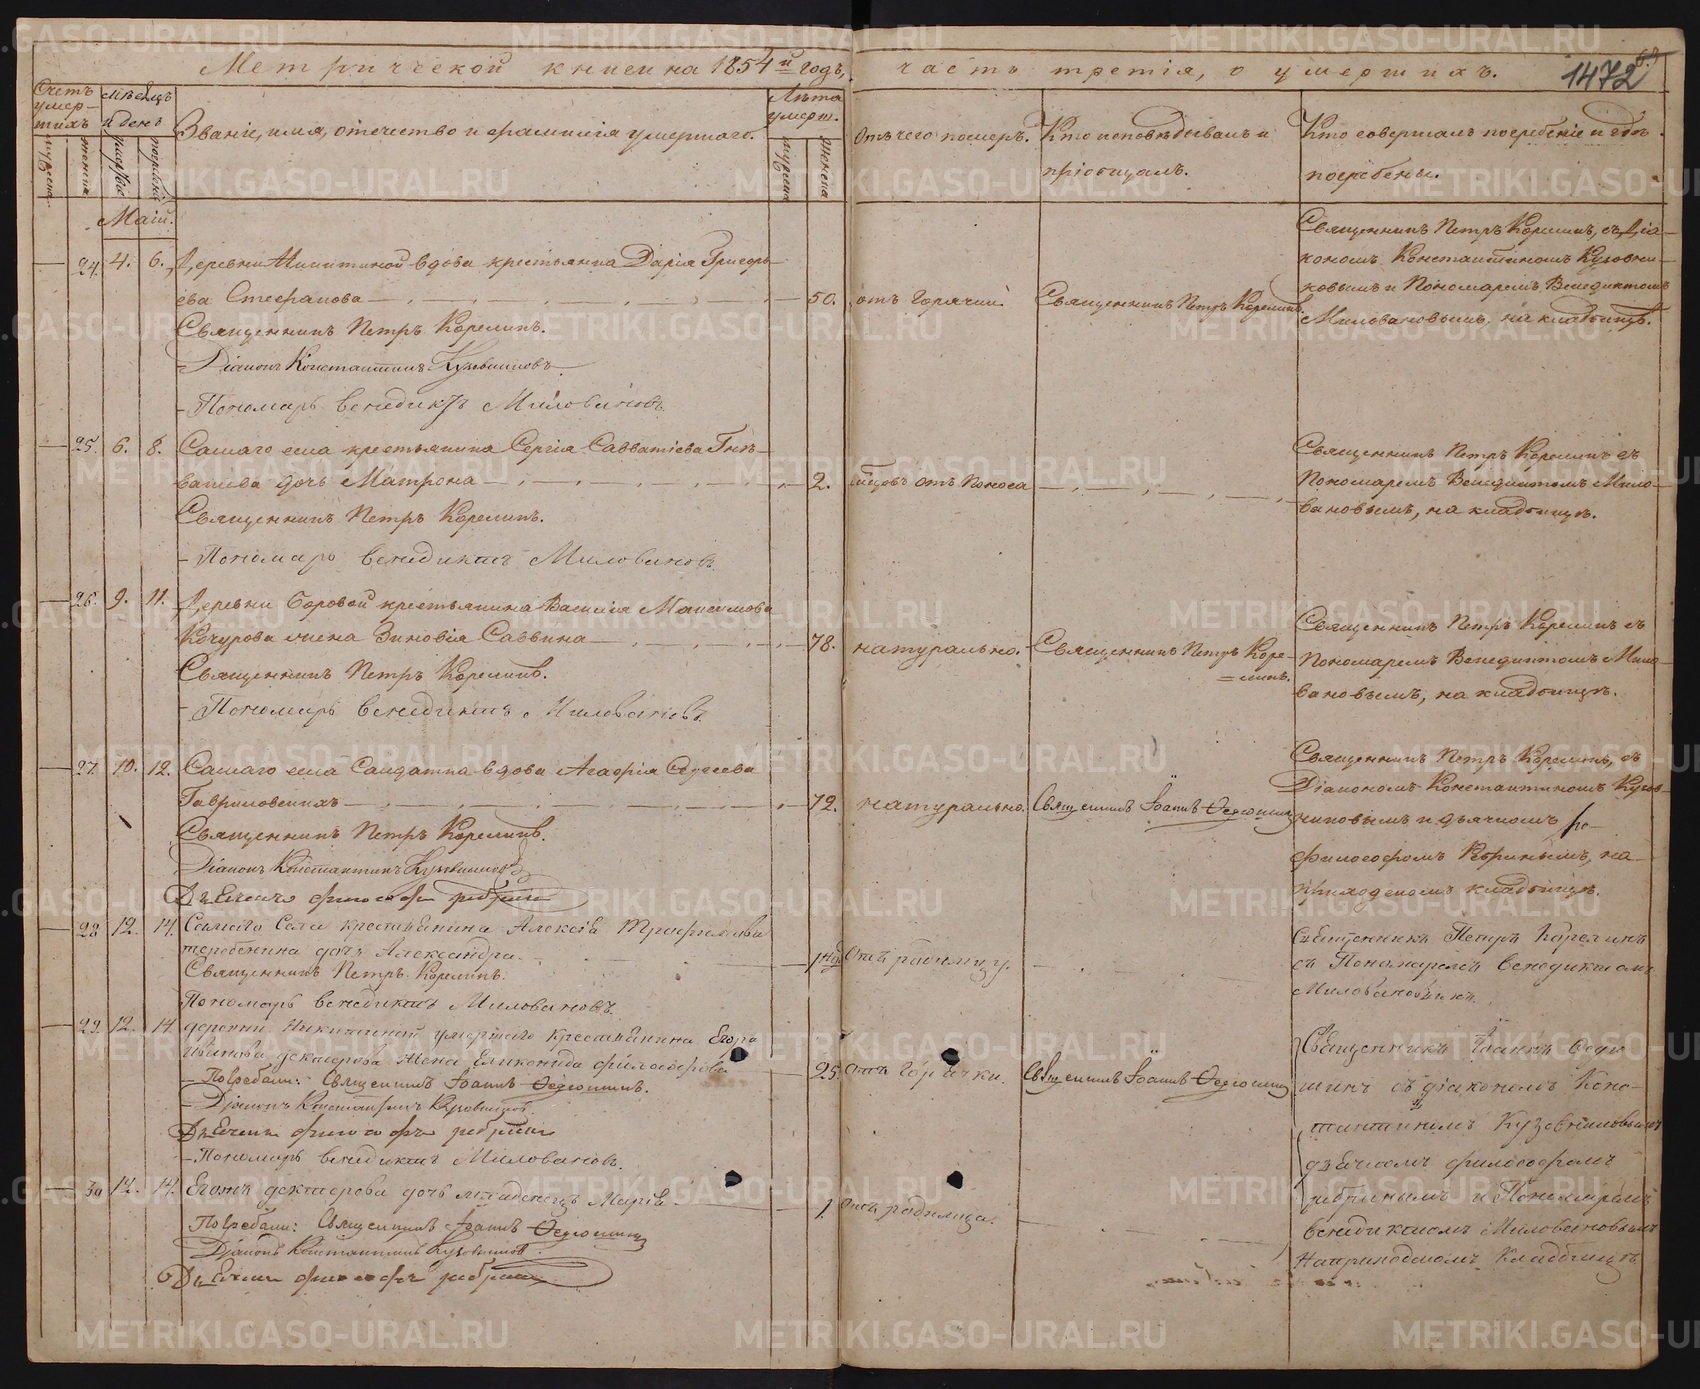 Метрической книги на 1854й годъ,
часть третія, о умершихъ.
1472
Счетъ умер-
шихъ
Мѣсяцъ
и день
Званіе, имя, отчество и фамилія умершаго.
Лѣта
умерш.
Отъ чего померъ.
Кто исповѣдывалъ и
пріобщалъ.
Кто совершалъ погребеніе и гдѣ
погребены.
мужеска
женска
смерти
погребенія
мужеска
женска
Маій.
24. 4. 6. Деревни Никитиной вдова крестьянка Дарія Григорь-
ева Стефанова 50. отъ горячки Священникъ Петръ Корелинъ.
Священникъ Петръ Корелинъ.
Діаконъ Константинъ Кузовниковъ
Пономарь Венедиктъ Миловановъ
Священникъ Петръ Корелинъ, съ Діа-
кономъ Константиномъ Кузовни-
ковымъ и Пономаремъ Венедиктомъ
Миловановымъ, на кладбищѣ.
25. 6. 8. Самаго села крестьянина Сергія Савватіева Гнѣ-
вашева дочь Матрона 2. отъ поноса
Священникъ Петръ Корелинъ.
Пономарь Венедиктъ Миловановъ
Священникъ Петръ Корелинъ съ
Пономаремъ Венедиктомъ Мило-
вановымъ, на кладбищѣ.
26. 9. 11. Деревни Боровой крестьянина Василія Максимова
Кочурова жена Зиновія Саввина 78. натурально. Священникъ Петръ Коре-
=линъ.
Священникъ Петръ Корелинъ.
Пономарь Венедиктъ Миловановъ
Священникъ Петръ Корелинъ съ
Пономаремъ Венедиктомъ Мило-
вановымъ, на кладбищѣ.
27. 10. 12. Самаго села Солдатка вдова Агафія Сергеева
Гавриловскихъ 72. натурально. Священникъ Іоаннъ Ѳедюшинъ
Священникъ Петръ Корелинъ.
Діаконъ Константинъ Кузовниковъ
Дьячекъ Философъ Ребринъ
Священникъ Петръ Корелинъ, съ
Діакономъ Константиномъ Кузов-
никовымъ и дьячкомъ
Философомъ Ребринымъ, на
приходскомъ кладбищѣ.
28 12. 14. Самаго Села крестьянина Алексѣя Трофимова
теребенина дочь Александра. Отъ родимцу.
Священникъ Петръ Корелинъ.
Пономарь Венедиктъ Миловановъ.
Священникъ Петръ Корелинъ
съ Пономаремъ Венедиктомъ
Миловановымъ.
29. 12. 14 деревни Никитиной умершаго крестьянина Егора
Иванова дектерова жена Еликонида философова 25. Отъ Горячки. Священникъ Іоаннъ Ѳедюшинъ
Погребали: Священникъ Іоаннъ Ѳедюшинъ.
Діаконъ Константинъ Кузовниковъ
Дьячекъ Философъ Ребринъ
Пономарь Венедиктъ Миловановъ.
Священникъ Іоаннъ Ѳедю-
шинъ съ діакономъ Конс-
тантиномъ Кузовниковымъ
дьячкомъ философомъ
ребринымъ и Пономаремъ
Венедиктомъ Миловановымъ
На приходскомъ Кладбищѣ
30 12. 14. Егожъ дектерова дочь младенецъ Марія 1. Отъ родимца.
Погребали: Священникъ Іоаннъ Ѳедюшинъ
Діаконъ Константинъ Кузовниковъ
Дьячекъ Философъ Ребринъ
METRIKI.GASO-URAL.RU